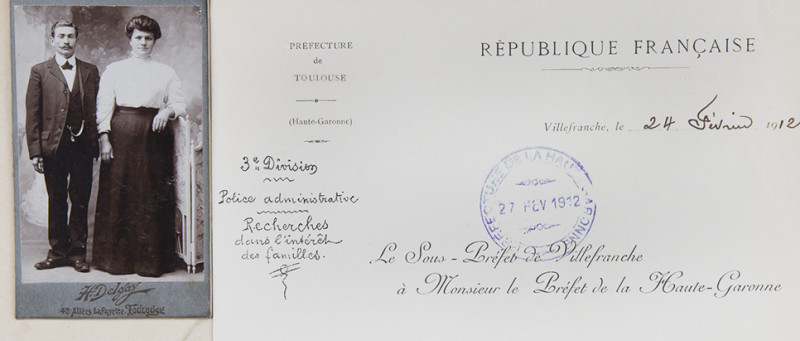 H. Delgay
40 Allées Lafayette. TOULOUSE
PRÉFECTURE
de
TOULOUSE
(Haute-Garonne)
3e Division
Police administrative
Recherches
dans l'intérêt
des familles.
RÉPUBLIQUE FRANÇAISE
Villefranche, le 24 Février 1912
PRÉFECTURE DE LA HAUTE-GARONNE
27 FEV 1912
Le Sous-Préfet de Villefranche
à Monsieur le Préfet de la Haute-Garonne